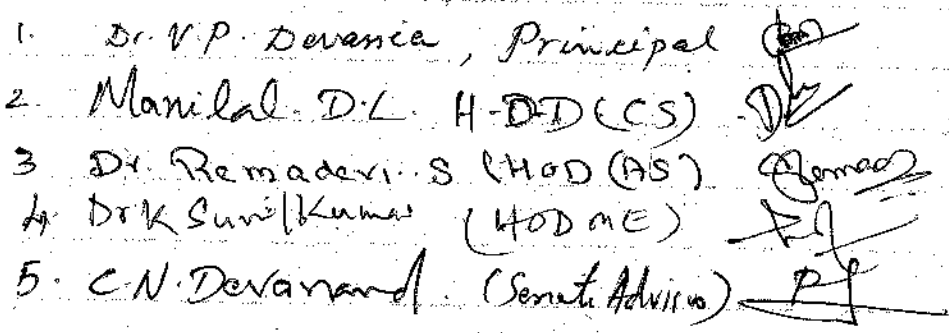 1. Dr. V.P. Devassia, Principal
2. Manilal. D.L. H-O-D (CS)
3 Dr. Remadevi. S (HOD (AS)
4. Dr K Sunil Kumar (HOD ME)
5. C.N. Devanand. (Senate Advisor)